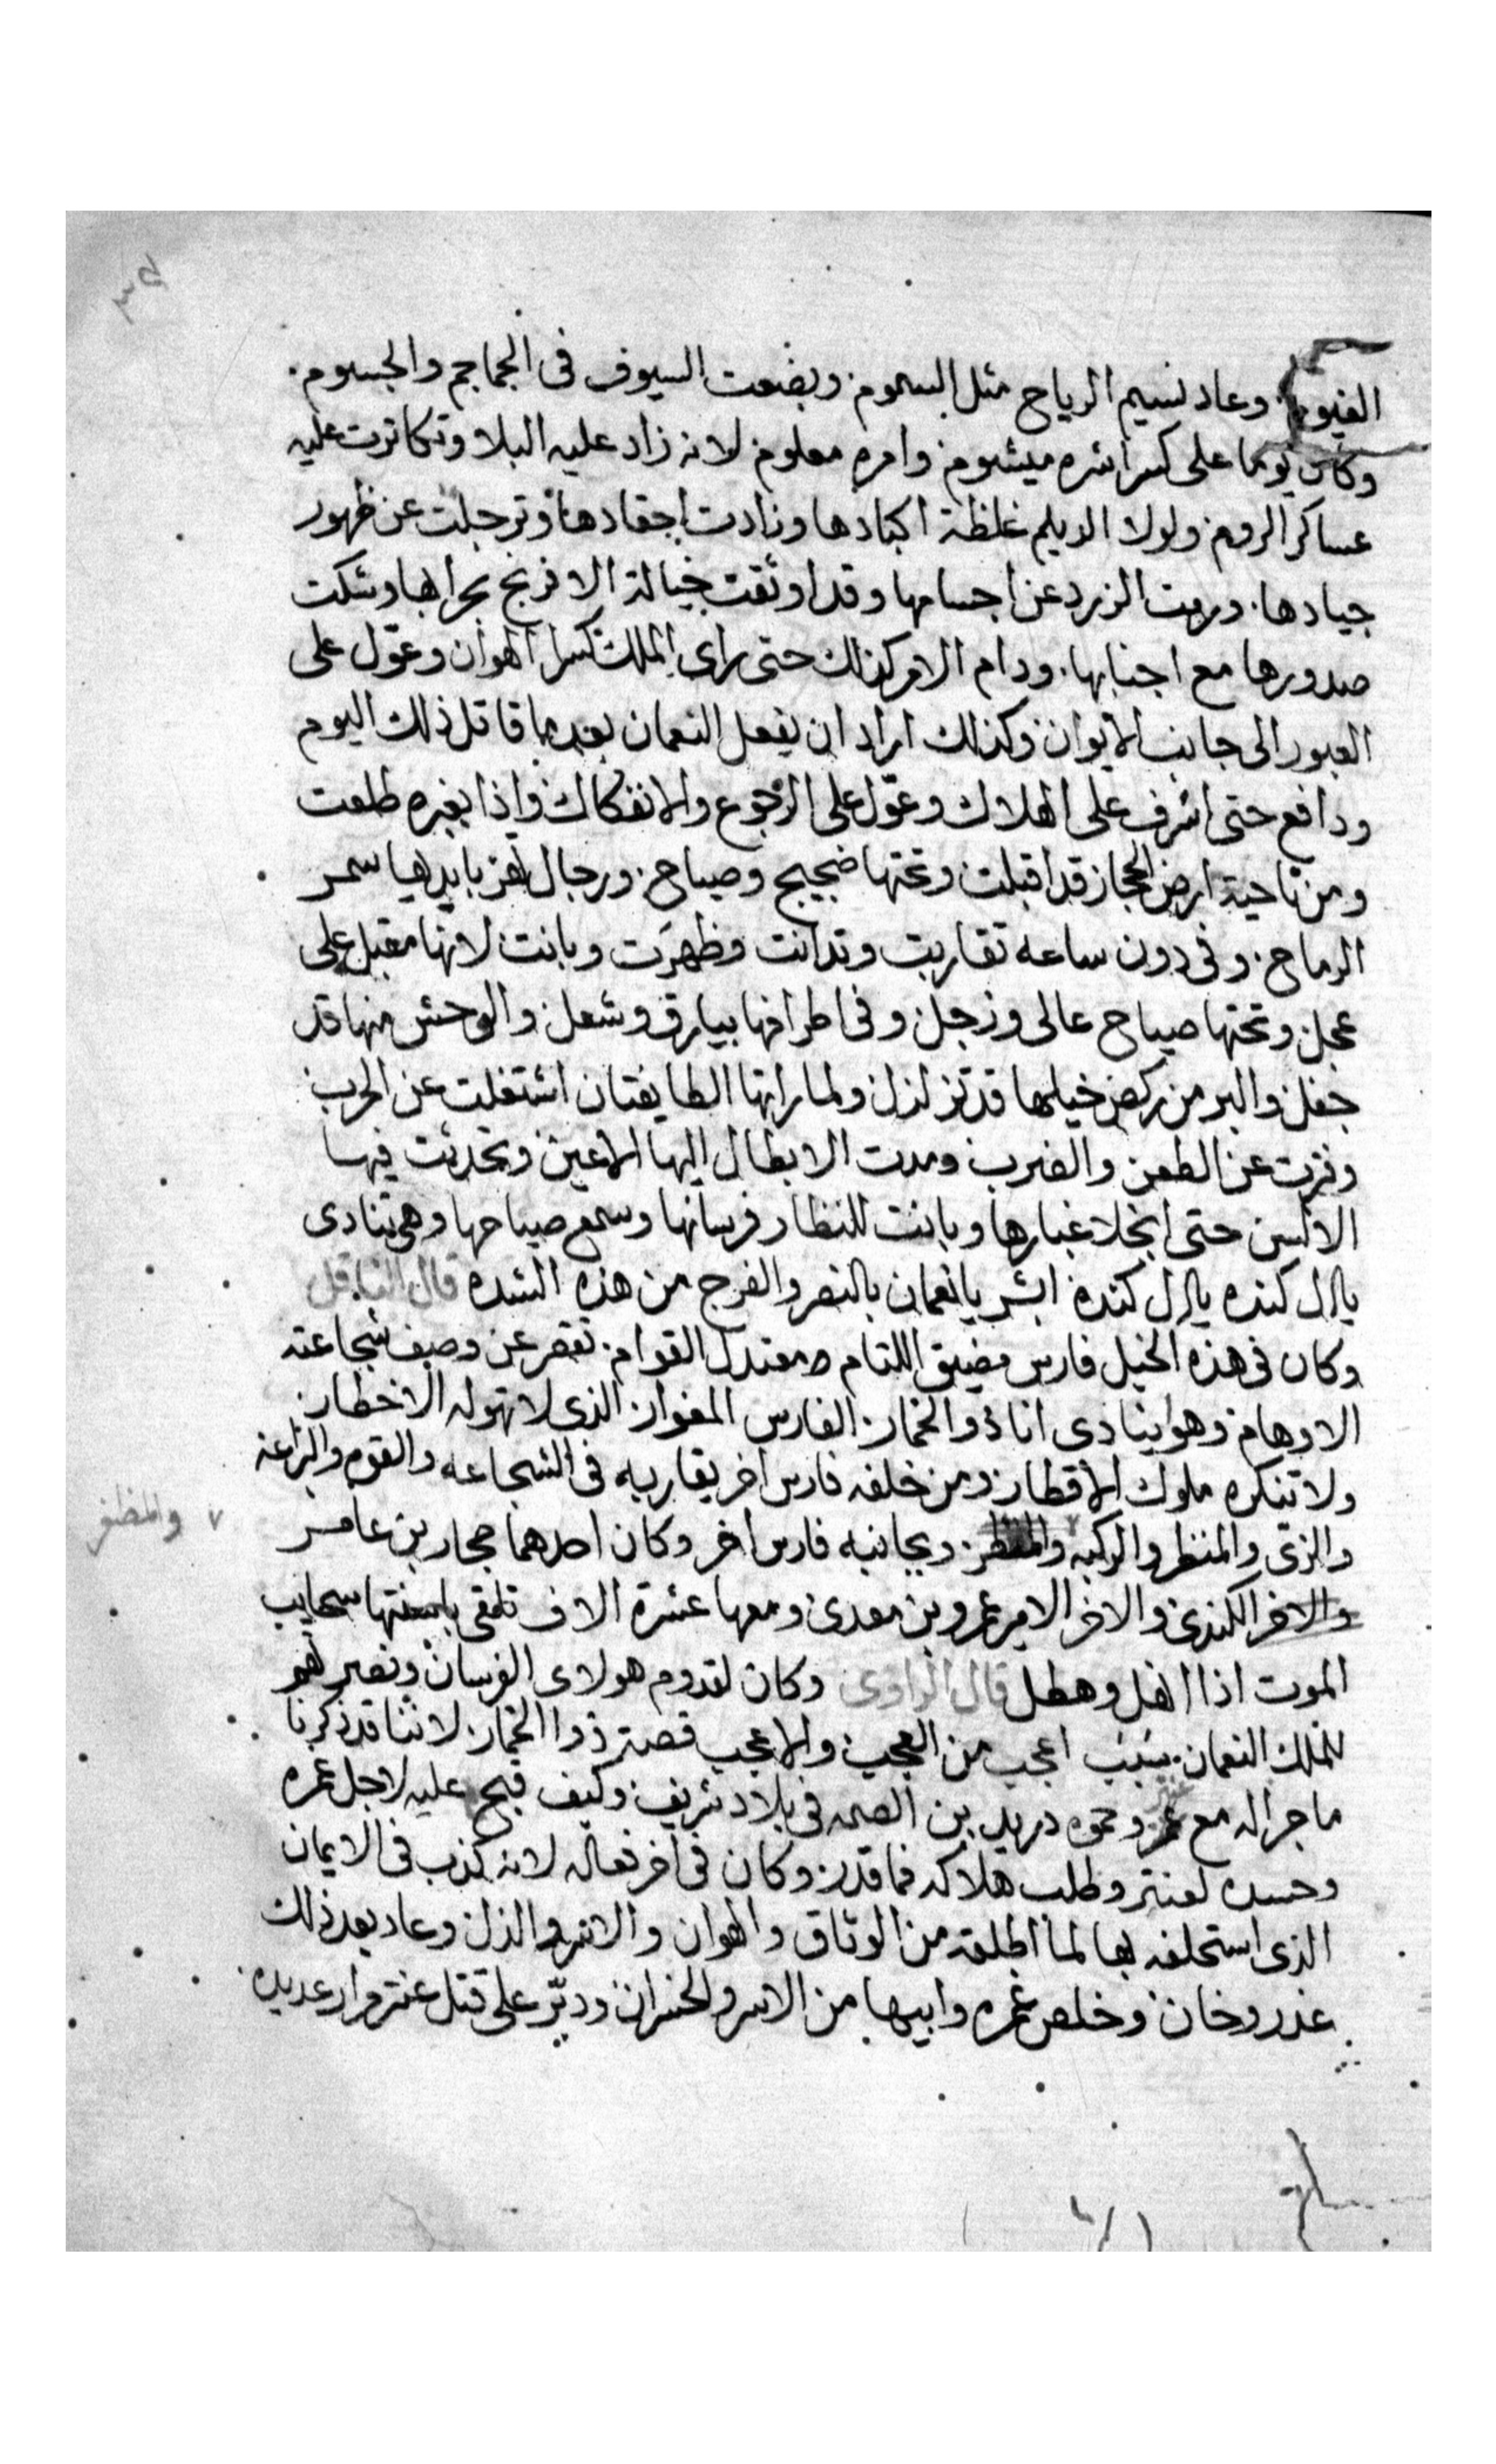 الغيوم. وعاد نسيم الرياح مثل السموم. وبضعت السيوف فى الجماجم والجسوم.
وكان يوما على كسرا شره ميشوم وامره معلوم لانه زاد عليه البلا وتكاثرت عليه
عساكر الروم ولولا الديلم غلظة اكبادها وزادت احقادها وترجلت عن ظهور
جيادها. ورمت الزرد عن اجسامها وقد اوثقت خيالة الافرنج بحرابها وشكت
صدورها مع اجنابها. ودام الامر كذلك حتى راى الملك كسرا الهوان وعوّل على
العبور الى جانب الايوان وكذلك اراد ان يفعل النعمان بعد ما قاتل ذلك اليوم
ودافع حتى اشرف على الهلاك وعوّل على الرجوع والانفكاك واذا بغبره طلعت
ومن ناحية ارض الحجاز قد اقبلت وتحتها ضجيج وصياح. ورجال تهز بايديها سمر
الرماح. وفى دون ساعه تقاربت وتدانت وظهرت وبانت لانها مقبل على
عجل وتحتها صياح عالى وزجل وفى اطرافها بيارق وشعل والوحش منها قد
جفل والبر من ركض خيلها قد تزلزل ولما راتها الطايفتان اشتغلت عن الحرب
وفترت عن الطعن والضرب ومدت الابطال اليها الاعين وتحدثت فيها
الالسن حتى انجلا غبارها وبانت للنظار فرسانها وسمع صياحها وهى تنادى
يال كنده يال كنده ابشر يا نعمان بالنصر والفرج من هذه الشده قال الناقل
وكان فى هذه الخيل فارس مضيق اللتام معتدل القوام. تقصر عن وصف شجاعته
الاوهام وهو ينادى انا ذو الخمار. الفارس المغوار. الذى لا تهوله الاخطار.
ولا تنكره ملوك الاقطار ومن خلفه فارس اخر يقاربه فى الشجاعه والقوه والبراعه
والزى والمنظر والركبه ويجانبه فارس اخر وكان احدهما حجار بن عامر
والمظفر
والاخر الكندى والاخر الامير عمرو بن معدى ومعها عشرة الاف تلقى باسنتها سحايب
الموت اذا انهل وهطل قال الراوى وكان لقدوم هولاى الفرسان ونصرهم
للملك النعمان. سبب اعجب من العجب والاعجب قصة ذوا الخمار. لاننا قد ذكرنا
ما جرا له مع وحموه دريد بن الصمه فى بلاد شريف وكيف قبح عليه لاجل غمره
وحسده لعنتر وطلب هلاكه فما قدر. وكان فى اخر فعاله لانه كذب فى الايمان
الذى استحلفه بها لما اطلقه من الوثاق والهوان والاسر والذل وعاد بعد ذلك
غدر وخان وخلص غمره وابيها من الاسر والخسران ودبّر على قتل عنتر مرار عديده